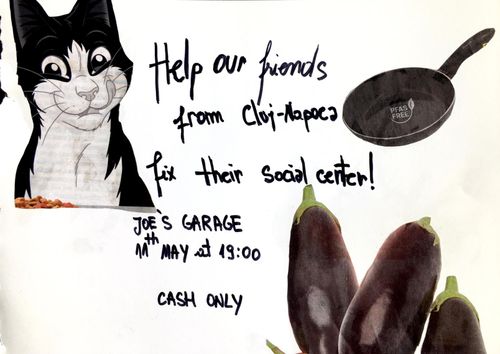 Help our friends
from Cloj-Napoca
fix their social center!
PFAS
FREE
JOE'S GARAGE
11th MAY at 19:00
CASH ONLY